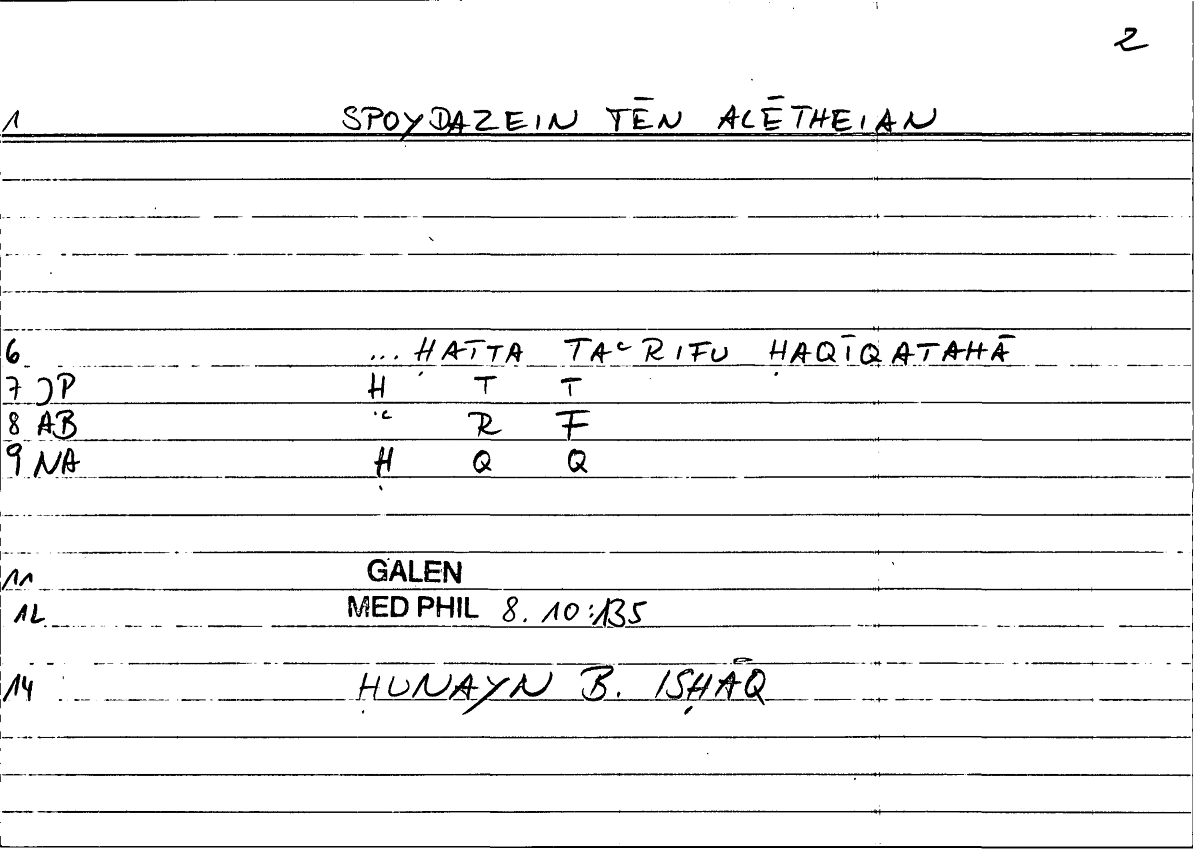 2
1 SPOYDAZEIN TĒN ALĒTHEIAN
6 ... ḤATTĀ TAʿRIFU ḤAQĪQATAHĀ
7 JP H T T
8 AB ʿ R F
9 NA Ḥ Q Q
11 GALEN
12 MED PHIL 8. 10:135
14 ḤUNAYN B. ISḤĀQ